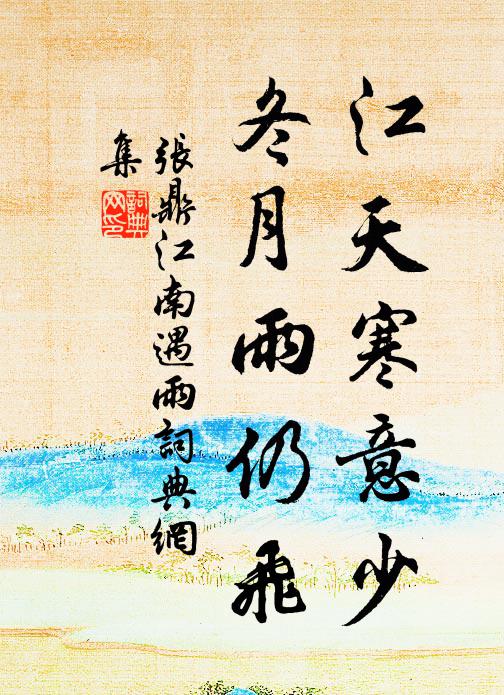 江天寒意少
冬月雨仍飛
張鼎江南遇雨詞典網
集
詞典
网印